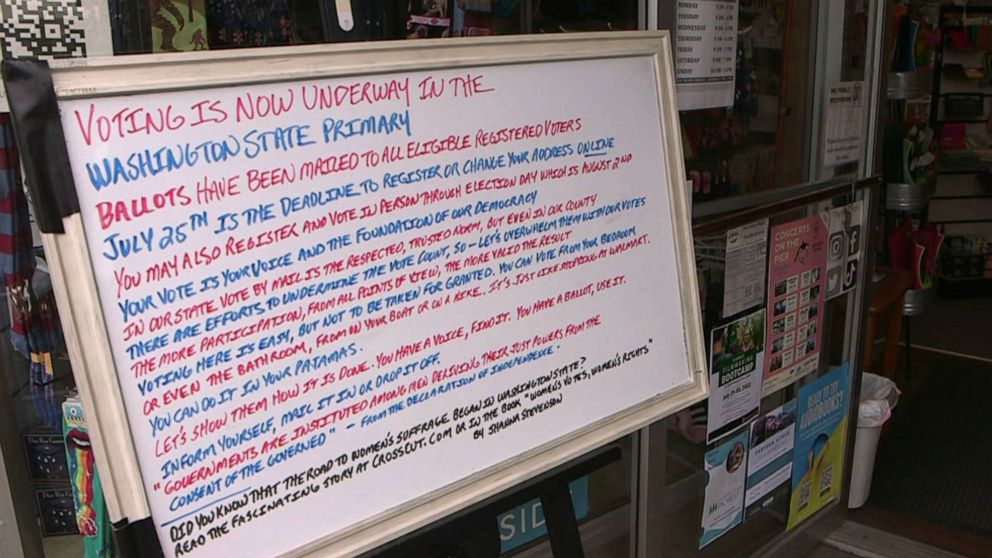 VOTING IS NOW UNDERWAY IN THE
WASHINGTON STATE PRIMARY
BALLOTS HAVE BEEN MAILED TO ALL ELIGIBLE REGISTERED VOTERS
JULY 25TH IS THE DEADLINE TO REGISTER OR CHANGE YOUR ADDRESS ONLINE
YOU MAY ALSO REGISTER AND VOTE IN PERSON THROUGH ELECTION DAY WHICH IS AUGUST 2ND
YOUR VOTE IS YOUR VOICE AND THE FOUNDATION OF OUR DEMOCRACY
IN OUR STATE VOTE BY MAIL IS THE RESPECTED, TRUSTED NORM, BUT EVEN IN OUR COUNTY
THERE ARE EFFORTS TO UNDERMINE THE VOTE COUNT, SO - LET'S OVERWHELM THEM WITH OUR VOTES
THE MORE PARTICIPATION, FROM ALL POINTS OF VIEW, THE MORE VALID THE RESULT
VOTING HERE IS EASY, BUT NOT TO BE TAKEN FOR GRANTED. YOU CAN VOTE FROM YOUR BEDROOM
OR EVEN THE BATHROOM, FROM ON YOUR BOAT OR ON A HIKE.. IT'S JUST LIKE SHOPPING AT WALMART.
YOU CAN DO IT IN YOUR PAJAMAS.
LET'S SHOW THEM HOW IT IS DONE. YOU HAVE A VOICE, FIND IT. YOU HAVE A BALLOT, USE IT.
INFORM YOURSELF, MAIL IT IN OR DROP IT OFF.
"GOVERNMENTS ARE INSTITUTED AMONG MEN DERIVING THEIR JUST POWERS FROM THE
CONSENT OF THE GOVERNED" - FROM THE DECLARATION OF INDEPENDENCE.
DID YOU KNOW THAT THE ROAD TO WOMEN'S SUFFRAGE BEGAN IN WASHINGTON STATE?
READ THE FASCINATING STORY AT CROSSCUT.COM OR IN THE BOOK "WOMEN'S VOTES, WOMEN'S RIGHTS"
BY SHANNA STEVENSON
MONDAY
TUESDAY
WEDNESDAY
THURSDAY
FRIDAY
SATURDAY
SUNDAY
NO PUBLIC
RESTROOM
CONCERTS
ON THE
PIER
FILMMAKING
BOOTCAMP
READY TO TRY
AUDIOBOOKS?
SID